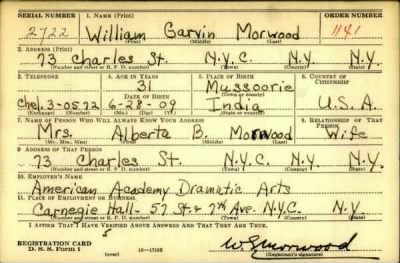 SERIAL NUMBER 1. NAME (Print) ORDER NUMBER
2722 William Garvin Morwood 1141
(First) (Middle) (Last)
2. ADDRESS (Print)
73 Charles St. N.Y.C. N.Y. N.Y.
(Number and street or R. F. D. number) (Town) (County) (State)
3. TELEPHONE 4. AGE IN YEARS 5. PLACE OF BIRTH 6. COUNTRY OF CITIZENSHIP
31 Mussoorie
DATE OF BIRTH (Town or county)
Chel. 3-0572 6-28-09 India U.S.A.
(Exchange) (Number) (Mo.) (Day) (Yr.) (State or country)
7. NAME OF PERSON WHO WILL ALWAYS KNOW YOUR ADDRESS 8. RELATIONSHIP OF THAT PERSON
Mrs. Alberta B. Morwood Wife
(Mr., Mrs., Miss) (First) (Middle) (Last)
9. ADDRESS OF THAT PERSON
73 Charles St. N.Y.C. N.Y. N.Y.
(Number and street or R. F. D. number) (Town) (County) (State)
10. EMPLOYER'S NAME
American Academy Dramatic Arts
11. PLACE OF EMPLOYMENT OR BUSINESS
Carnegie Hall- 57 St. & 7th Ave. N.Y.C. N.Y.
(Number and street or R. F. D. number) (Town) (County) (State)
I AFFIRM THAT I HAVE VERIFIED ABOVE ANSWERS AND THAT THEY ARE TRUE.
REGISTRATION CARD
D. S. S. Form 1 (over) 16-17105 WGMorwood
(Registrant's signature)